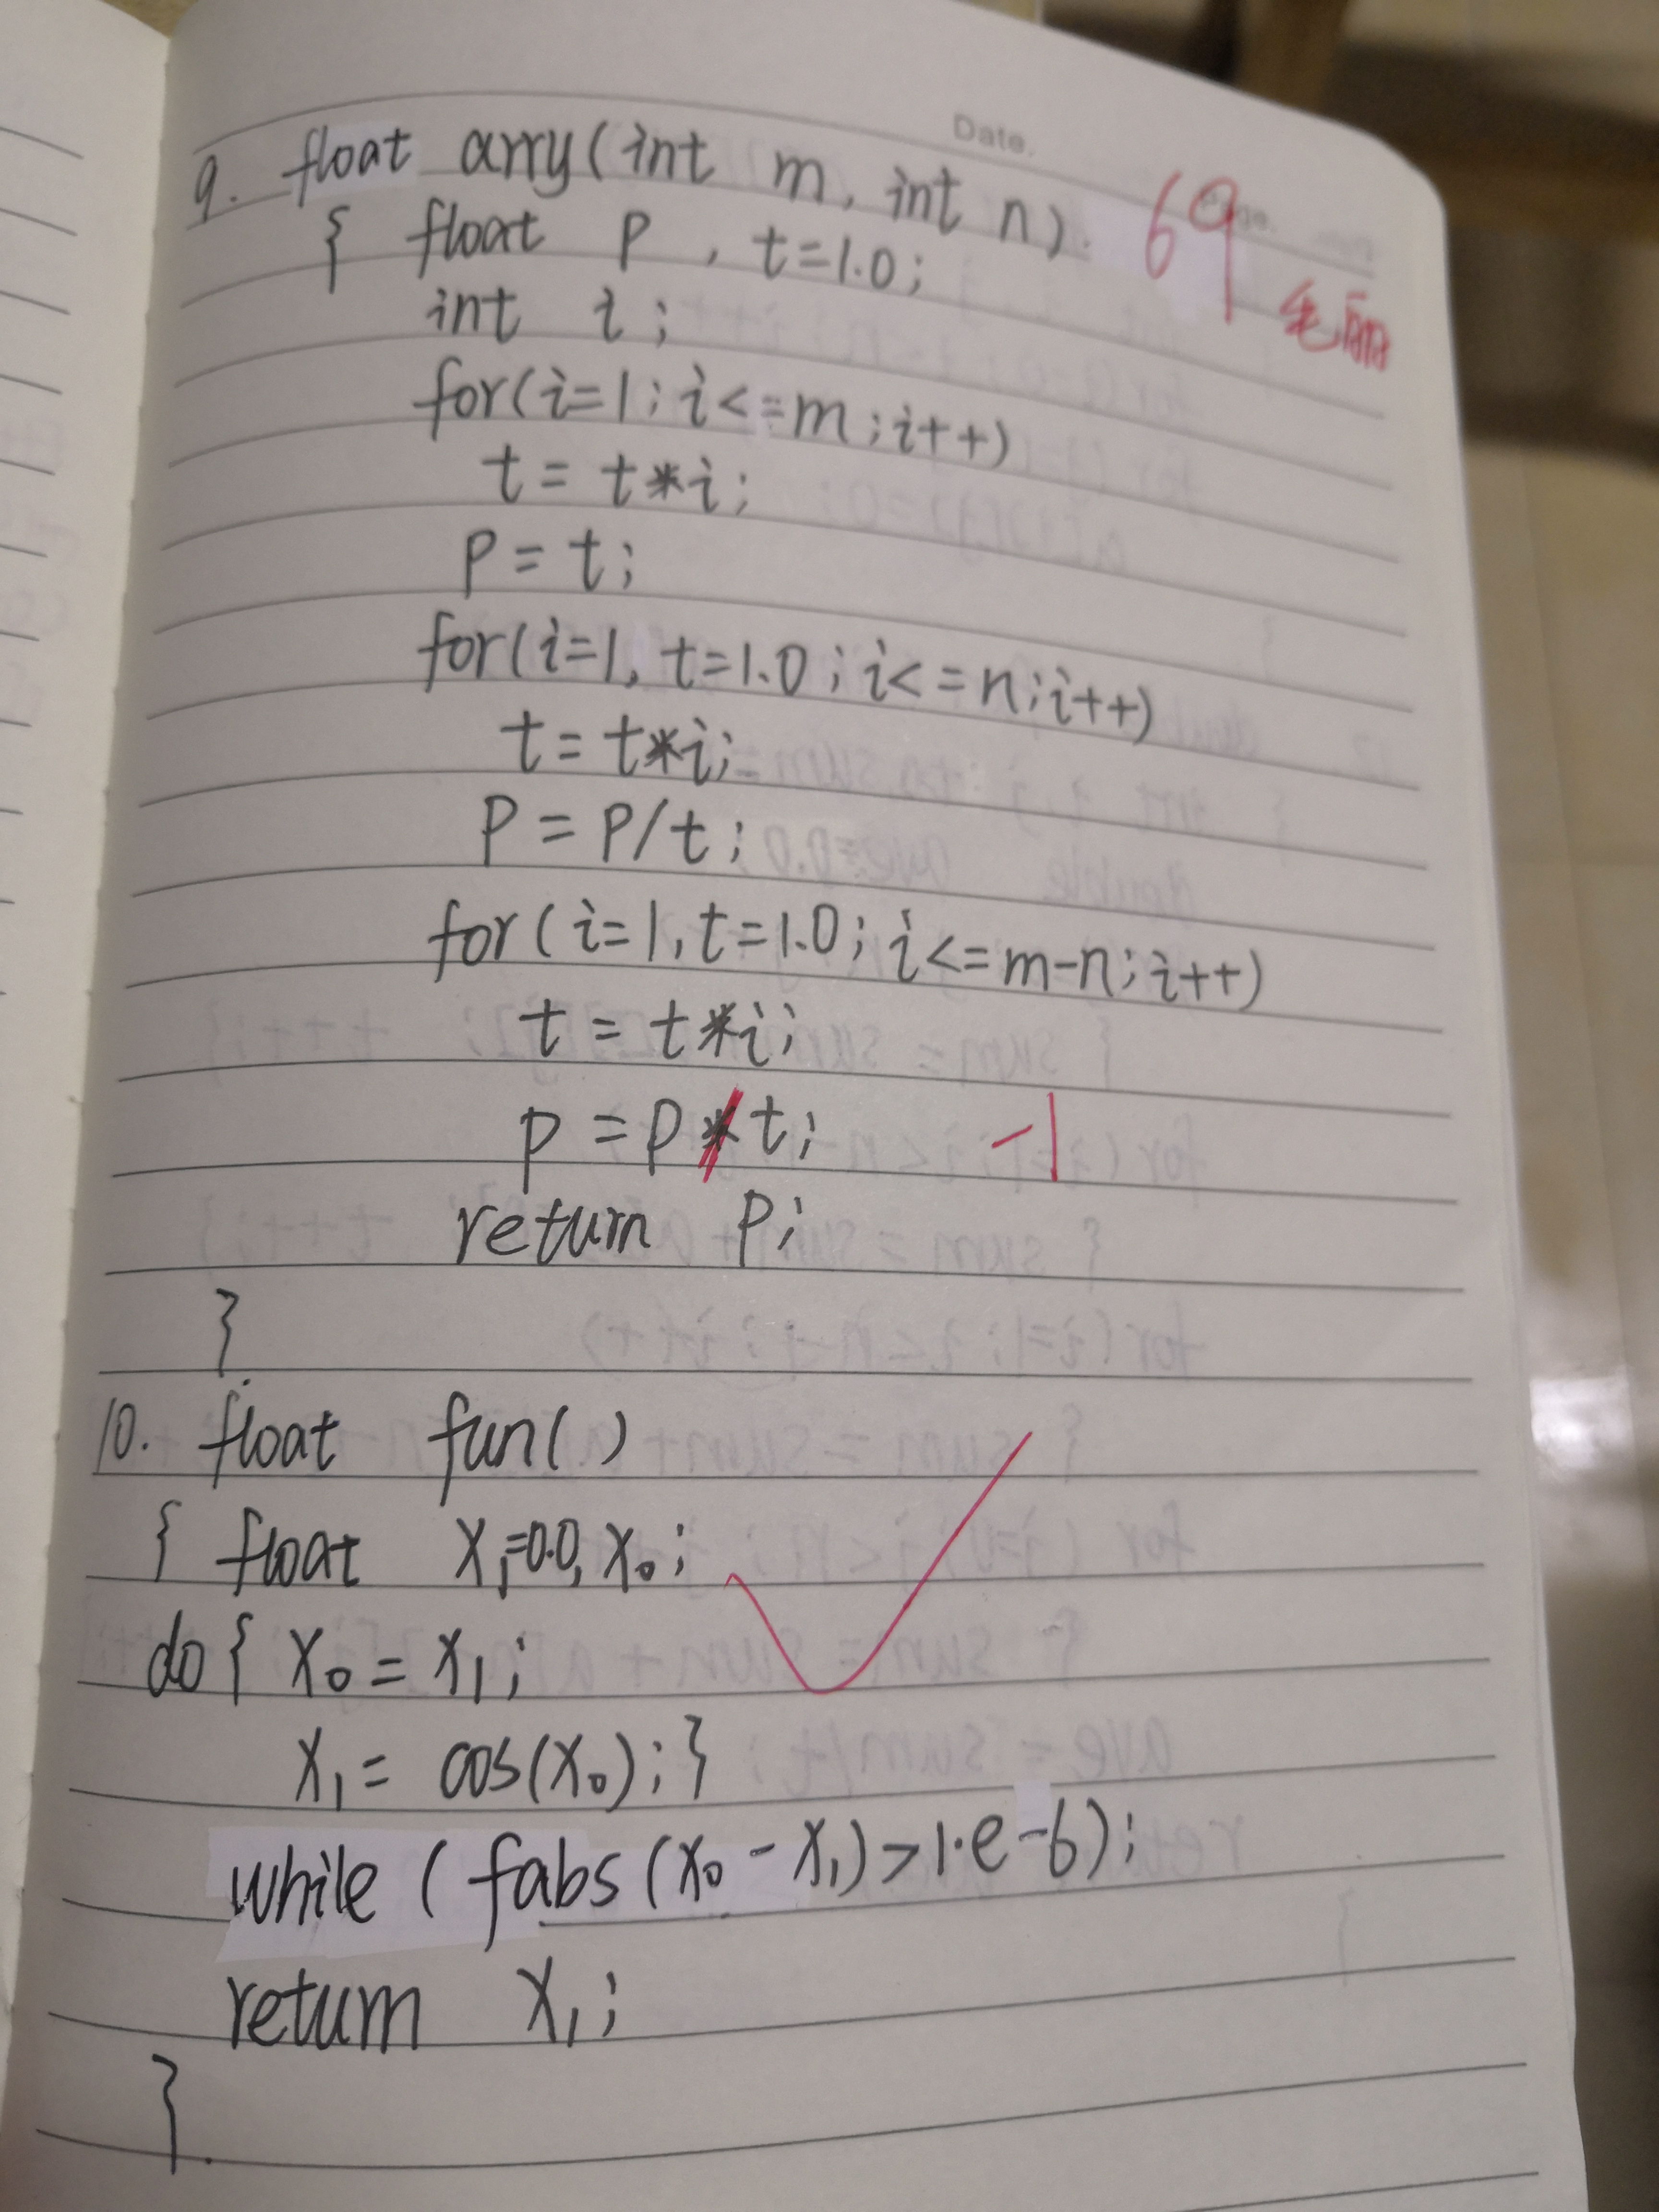 Date.
9. float arry(int m, int n).
69
{ float p, t=1.0;
int i;
for(i=1; i<=m; i++)
t = t*i;
p = t;
for(i=1, t=1.0; i<=n; i++)
t = t*i;
p = p/t;
for(i=1, t=1.0; i<=m-n; i++)
t = t*i;
p = p*t; -1
return p;
}
10. float fun()
{ float x₁=0.0, x₀;
do{ x₀ = x₁;
x₁ = cos(x₀);}
while( fabs(x₀-x₁)>1.e-6);
return x₁;
}.